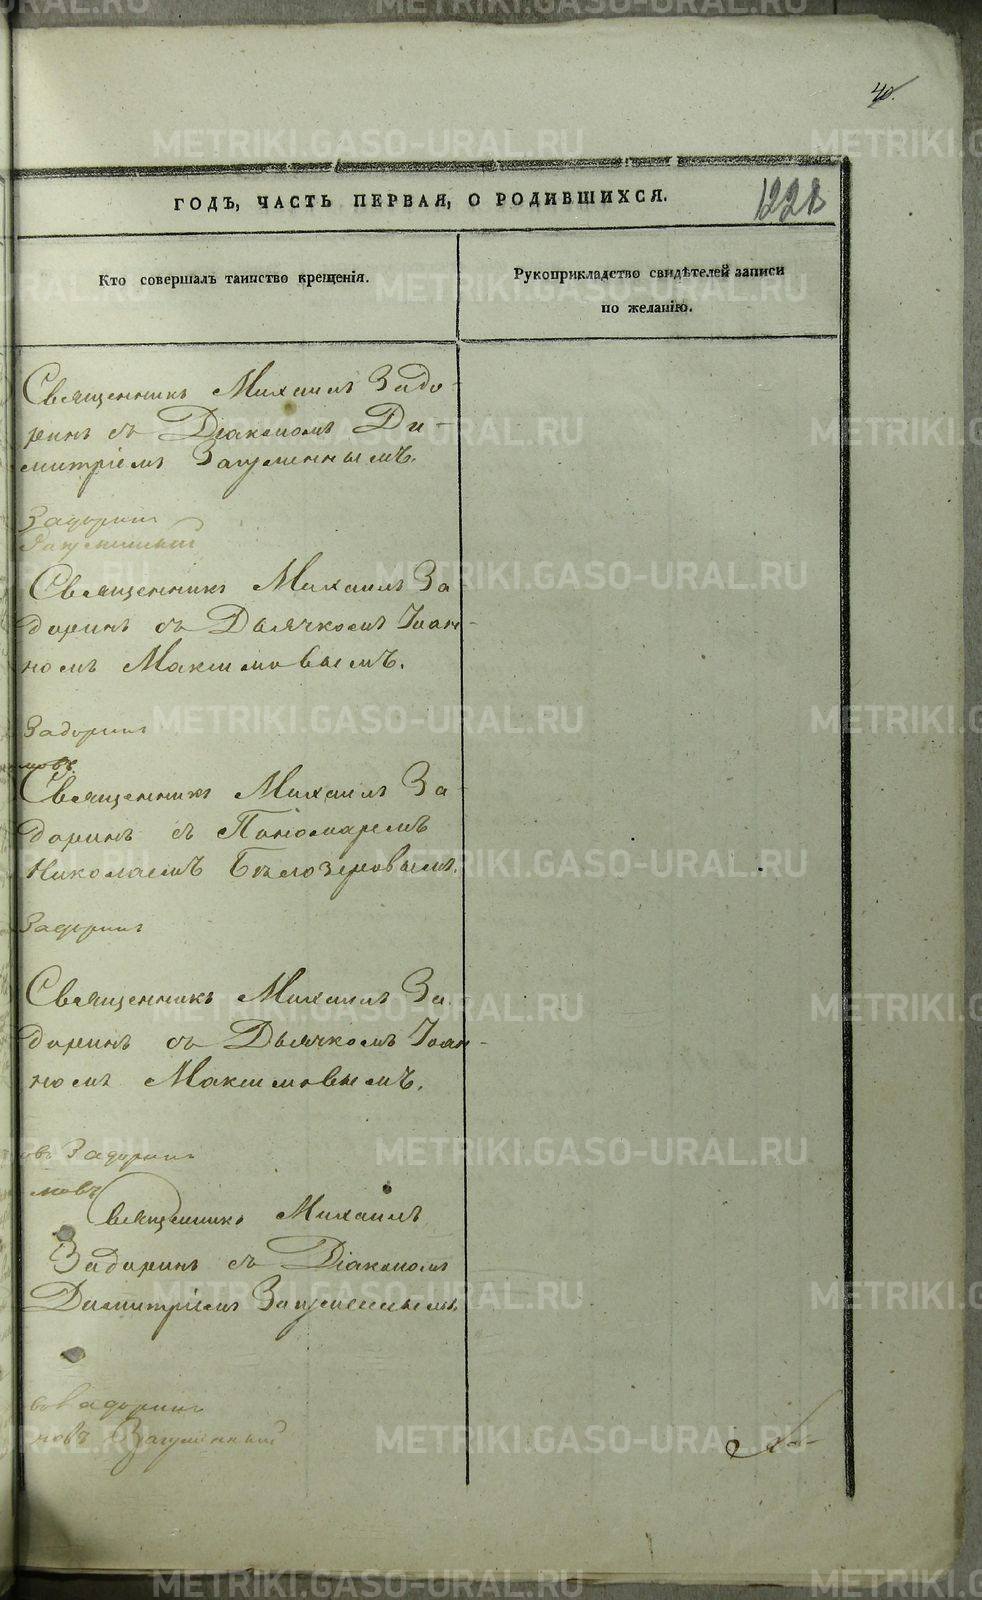 40.
ГОДЪ, ЧАСТЬ ПЕРВАЯ, О РОДИВШИХСЯ.
Кто совершалъ таинство крещенія.
Рукоприкладство свидѣтелей записи
по желанію.
Священникъ Михаилъ Задо-
ринъ съ Діакономъ Ди-
митріемъ Загуменнымъ.
Задоринъ
Загуменный
Священникъ Михаилъ За
доринъ съ Дьячкомъ Іоан-
номъ Максимовымъ.
Задоринъ
мовъ
Священникъ Михаилъ За-
доринъ съ Пономаремъ
Николаемъ Бѣлозеровымъ.
Задоринъ
Священникъ Михаилъ За
доринъ съ Дьячкомъ Іоан-
номъ Максимовымъ.
овъ Задоринъ
мовъ
Священникъ Михаилъ
Задоринъ съ Діакономъ
Димитріемъ Загуменнымъ
Задоринъ
новъ Загуменный
METRIKI.GASO-URAL.RU